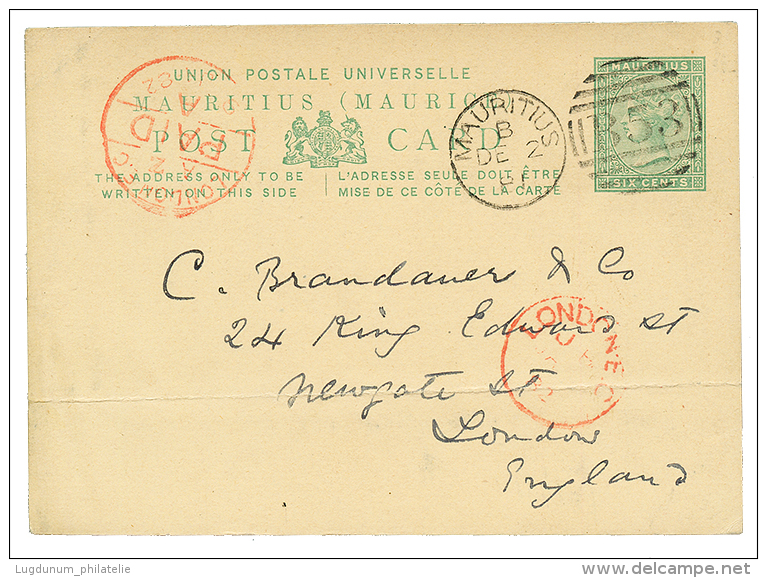 UNION POSTALE UNIVERSELLE
MAURITIUS (MAURICE)
POST CARD
THE ADDRESS ONLY TO BE
WRITTEN ON THIS SIDE
L'ADRESSE SEULE DOIT ÊTRE
MISE DE CE CÔTÉ DE LA CARTE
MAURITIUS
SIX CENTS
B53
MAURITIUS
B
DE 2
81
LONDON E.C
PAID
82
C. Brandauer & Co
24 King Edwards St
Newgate St
London
England
LONDON E.C
82
Lugdunum_philatelie
delcampe.net